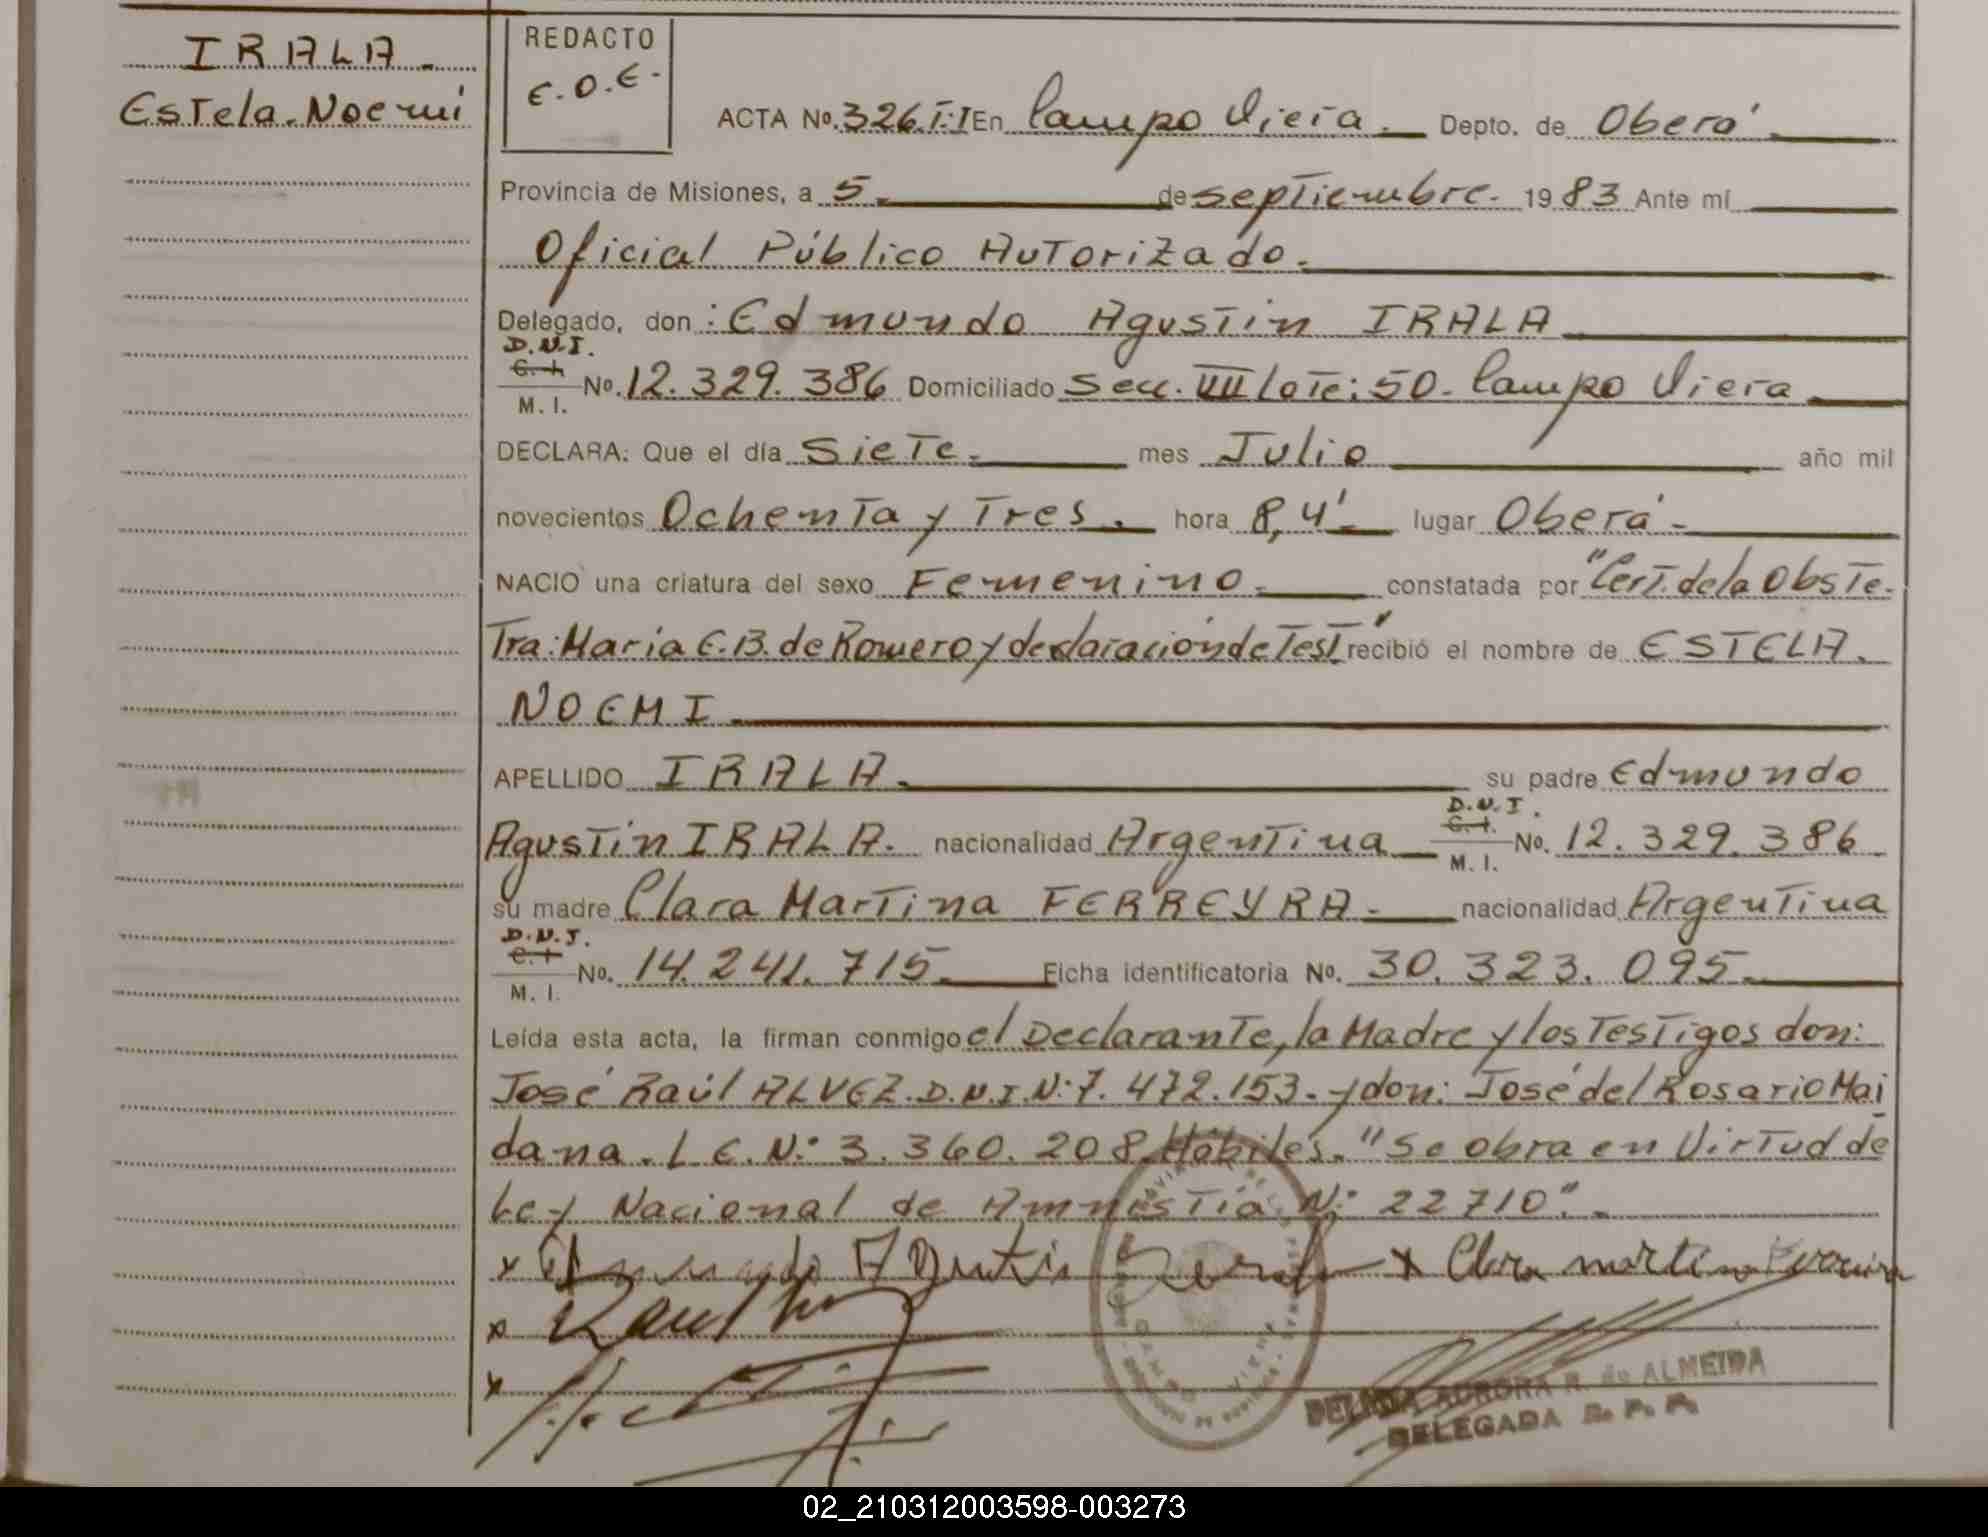 IRALA.
Estela. Noemi
REDACTO
E.O.E.
ACTA Nº. 326.T:I En Campo Viera. Depto. de Oberá.
Provincia de Misiones, a 5. de septiembre. 1983 Ante mí
Oficial Público Autorizado.
Delegado, don: Edmundo Agustin IRALA
D.N.I.
C. I. Nº. 12.329.386 Domiciliado Secc. VIII Lote: 50. Campo Viera
M. I.
DECLARA: Que el día Siete. mes Julio año mil
novecientos Ochenta y Tres. hora 8,4' lugar Oberá.
NACIO una criatura del sexo Femenino. constatada por "Cert. de la Obste-
tra: María E.B. de Romero y declaración de Test." recibió el nombre de ESTELA.
NOEMI
APELLIDO IRALA. su padre Edmundo
D.N.I.
Agustin IRALA. nacionalidad Argentina C. I. Nº. 12.329.386
M. I.
su madre Clara Martina FERREYRA. nacionalidad Argentina
D.N.I.
C. I. Nº. 14.241.715. Ficha identificatoria Nº. 30.323.095.
M. I.
Leída esta acta, la firman conmigo el Declarante, la Madre y los Testigos don:
José Raúl ALVEZ. D.N.I. N: 7.472.153. y don: José del Rosario Mai
dana. L E. N: 3.360.208 Hábiles. "Se obra en Virtud de
Ley Nacional de Amnistía N: 22710".
x Edmundo Agustin x Clara martina
x Raul
x
AURORA R. de ALMEIDA
DELEGADA R. P. P.
02_210312003598-003273